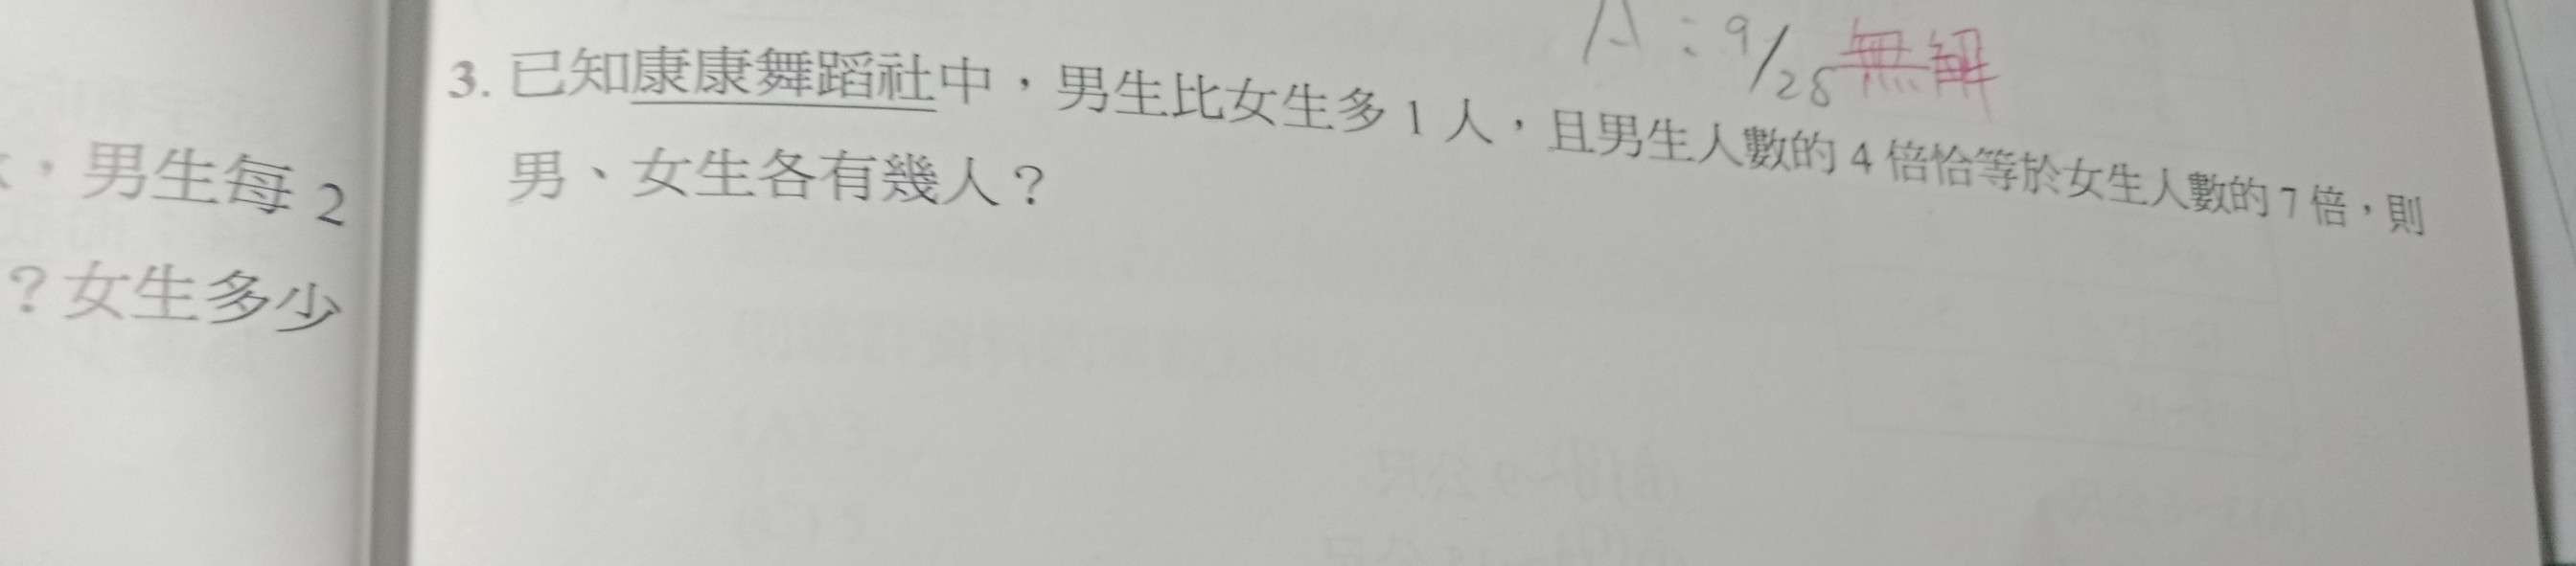 A：9/28無解
3. 已知康康舞蹈社中，男生比女生多1人，且男生人數的4倍恰等於女生人數的7倍，則
男、女生各有幾人？
，男生每2
？女生多少